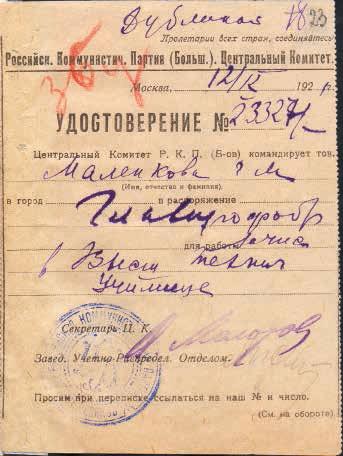 Дубликат 18 23
Пролетарии всех стран, соединяйтесь
Российск. Коммунистич. Партия (Больш.). Центральный Комитет.
Москва, 12/IX 192
УДОСТОВЕРЕНИЕ № 23327/
Центральный Комитет Р. К. П. (Б-ов) командирует тов.
Маленкова Г М
(Имя, отчество и фамилия).
в город в распоряжение
Главпрофобр
для работы
в Высш технич
Училище
Секретарь Ц. К.
Завед. Учетно-Распредел. Отделом.
Просим при переписке ссылаться на наш № и число.
(См. на обороте)